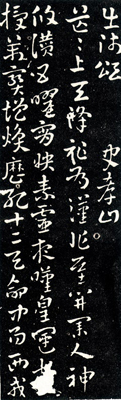 出師頌 史孝山
茫茫上天降祉為漢作基開業人神
攸讚五曜霄映素靈夜歎皇運來
授萬寶增煥歷紀十二天命中易西戎